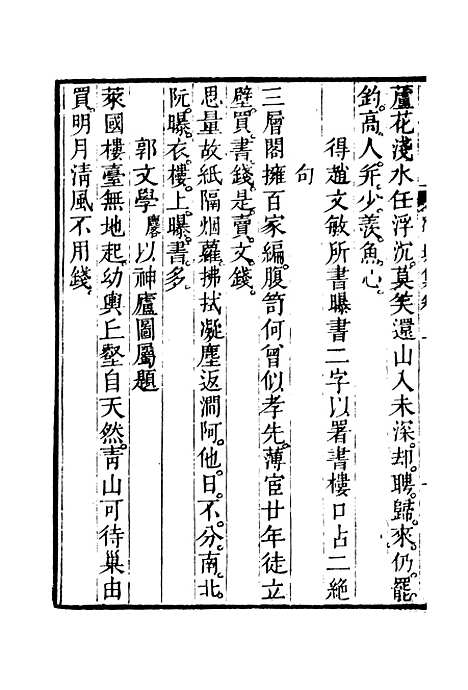 蘆花淺水任浮沉莫笑還山入未深却聘歸來仍罷
釣高人并少羨魚心
得趙文敏所書曝書二字以署書樓口占二絕
句
三層閣擁百家編腹笥何曾似孝先薄宦廿年徒立
壁買書錢是賣文錢
思量故紙隔烟蘿拂拭凝塵返澗阿他日不分南北
阮曝衣樓上曝書多
郭文學麐以神廬圖屬題
萊國樓臺無地起幼輿丘壑自天然靑山可待巢由
買明月清風不用錢